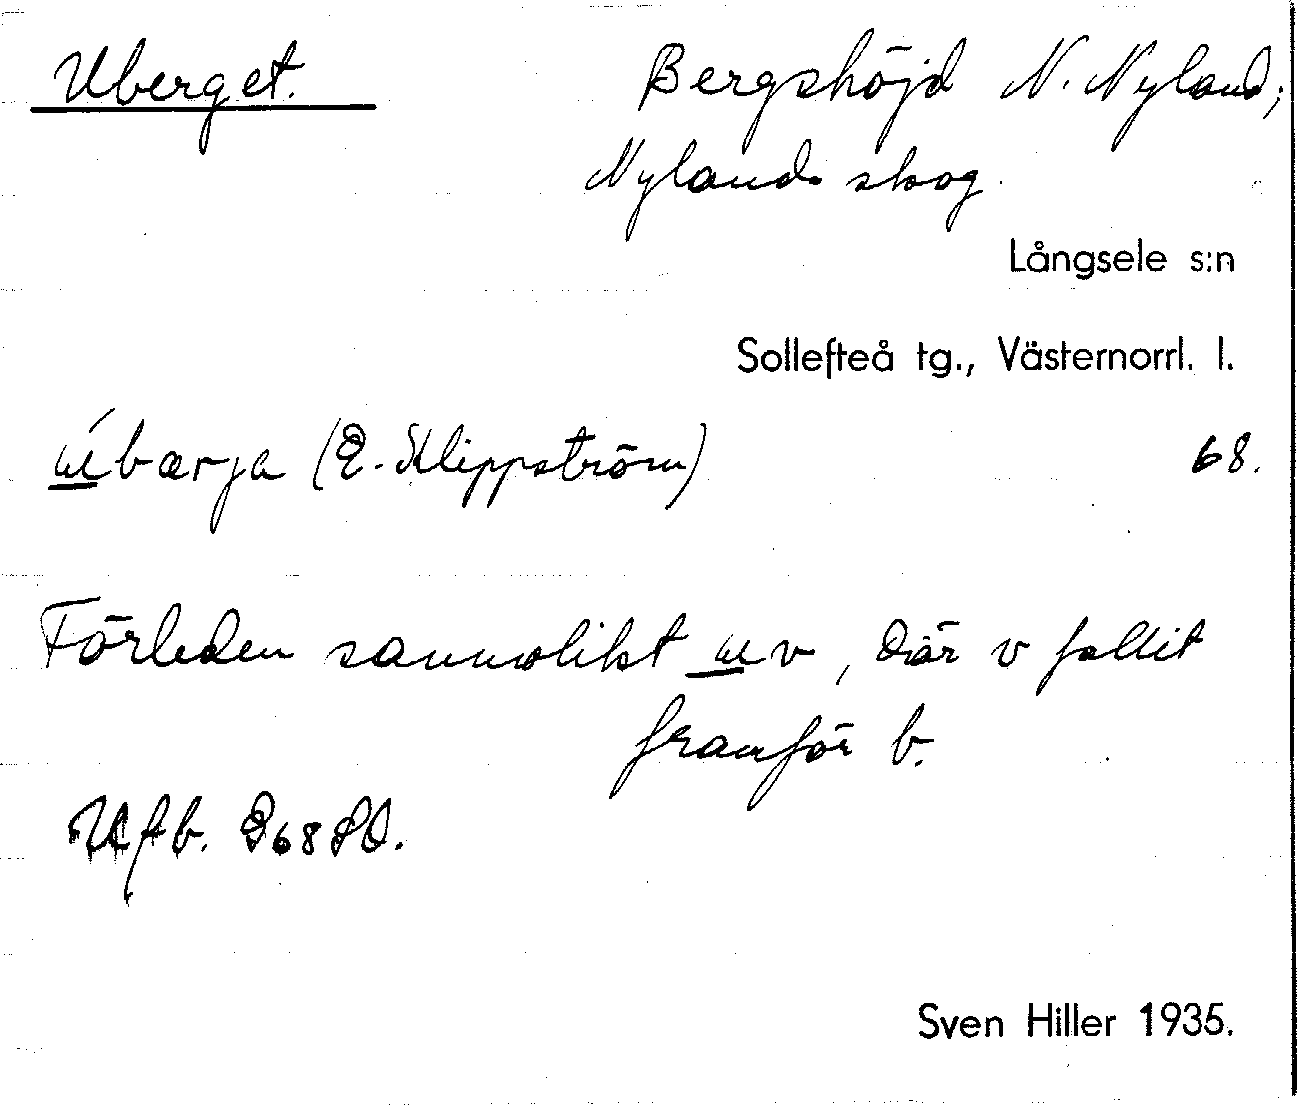 Uberget. Bergshöjd N. Nyland;
Nylands skog.
Långsele s:n
Sollefteå tg., Västernorrl. l.
úbærja (E. Klippström) 68.
Förleden sannolikt uv, där v fallit
framför b.
Utb.
Sven Hiller 1935.